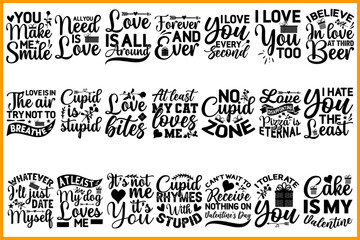 YOU
Make
ME
Smile
ALL YOU
Need
IS
Love
Love
IS ALL
Around
Forever
AND
Ever
I LOVE
YOU
EVERY
Second
I LOVE
YOU
Too
I BELIEVE
IN love
AT THIRD
Beer
LOVE IS IN
The air
TRY NOT TO
BREATHE
Cupid
is
stupid
Love
bites
At least
MY CAT
loves
ME
NO
Cupid
ZONE
Love
Pizza is
ETERNAL
I HATE
YOU
THE
Least
WHATEVER
I'll Just
DATE
Myself
AT LEAST
My dog
Loves
ME
It's not
me
it's
You
Cupid
RHYMES
With
STUPID
CAN'T WAIT TO
Receive
NOTHING ON
Valentine's Day
I TOLERATE
You
Cake
IS MY
Valentine